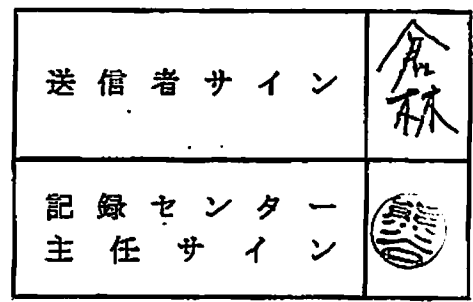 送信者サイン
倉林
記録センター
主任サイン